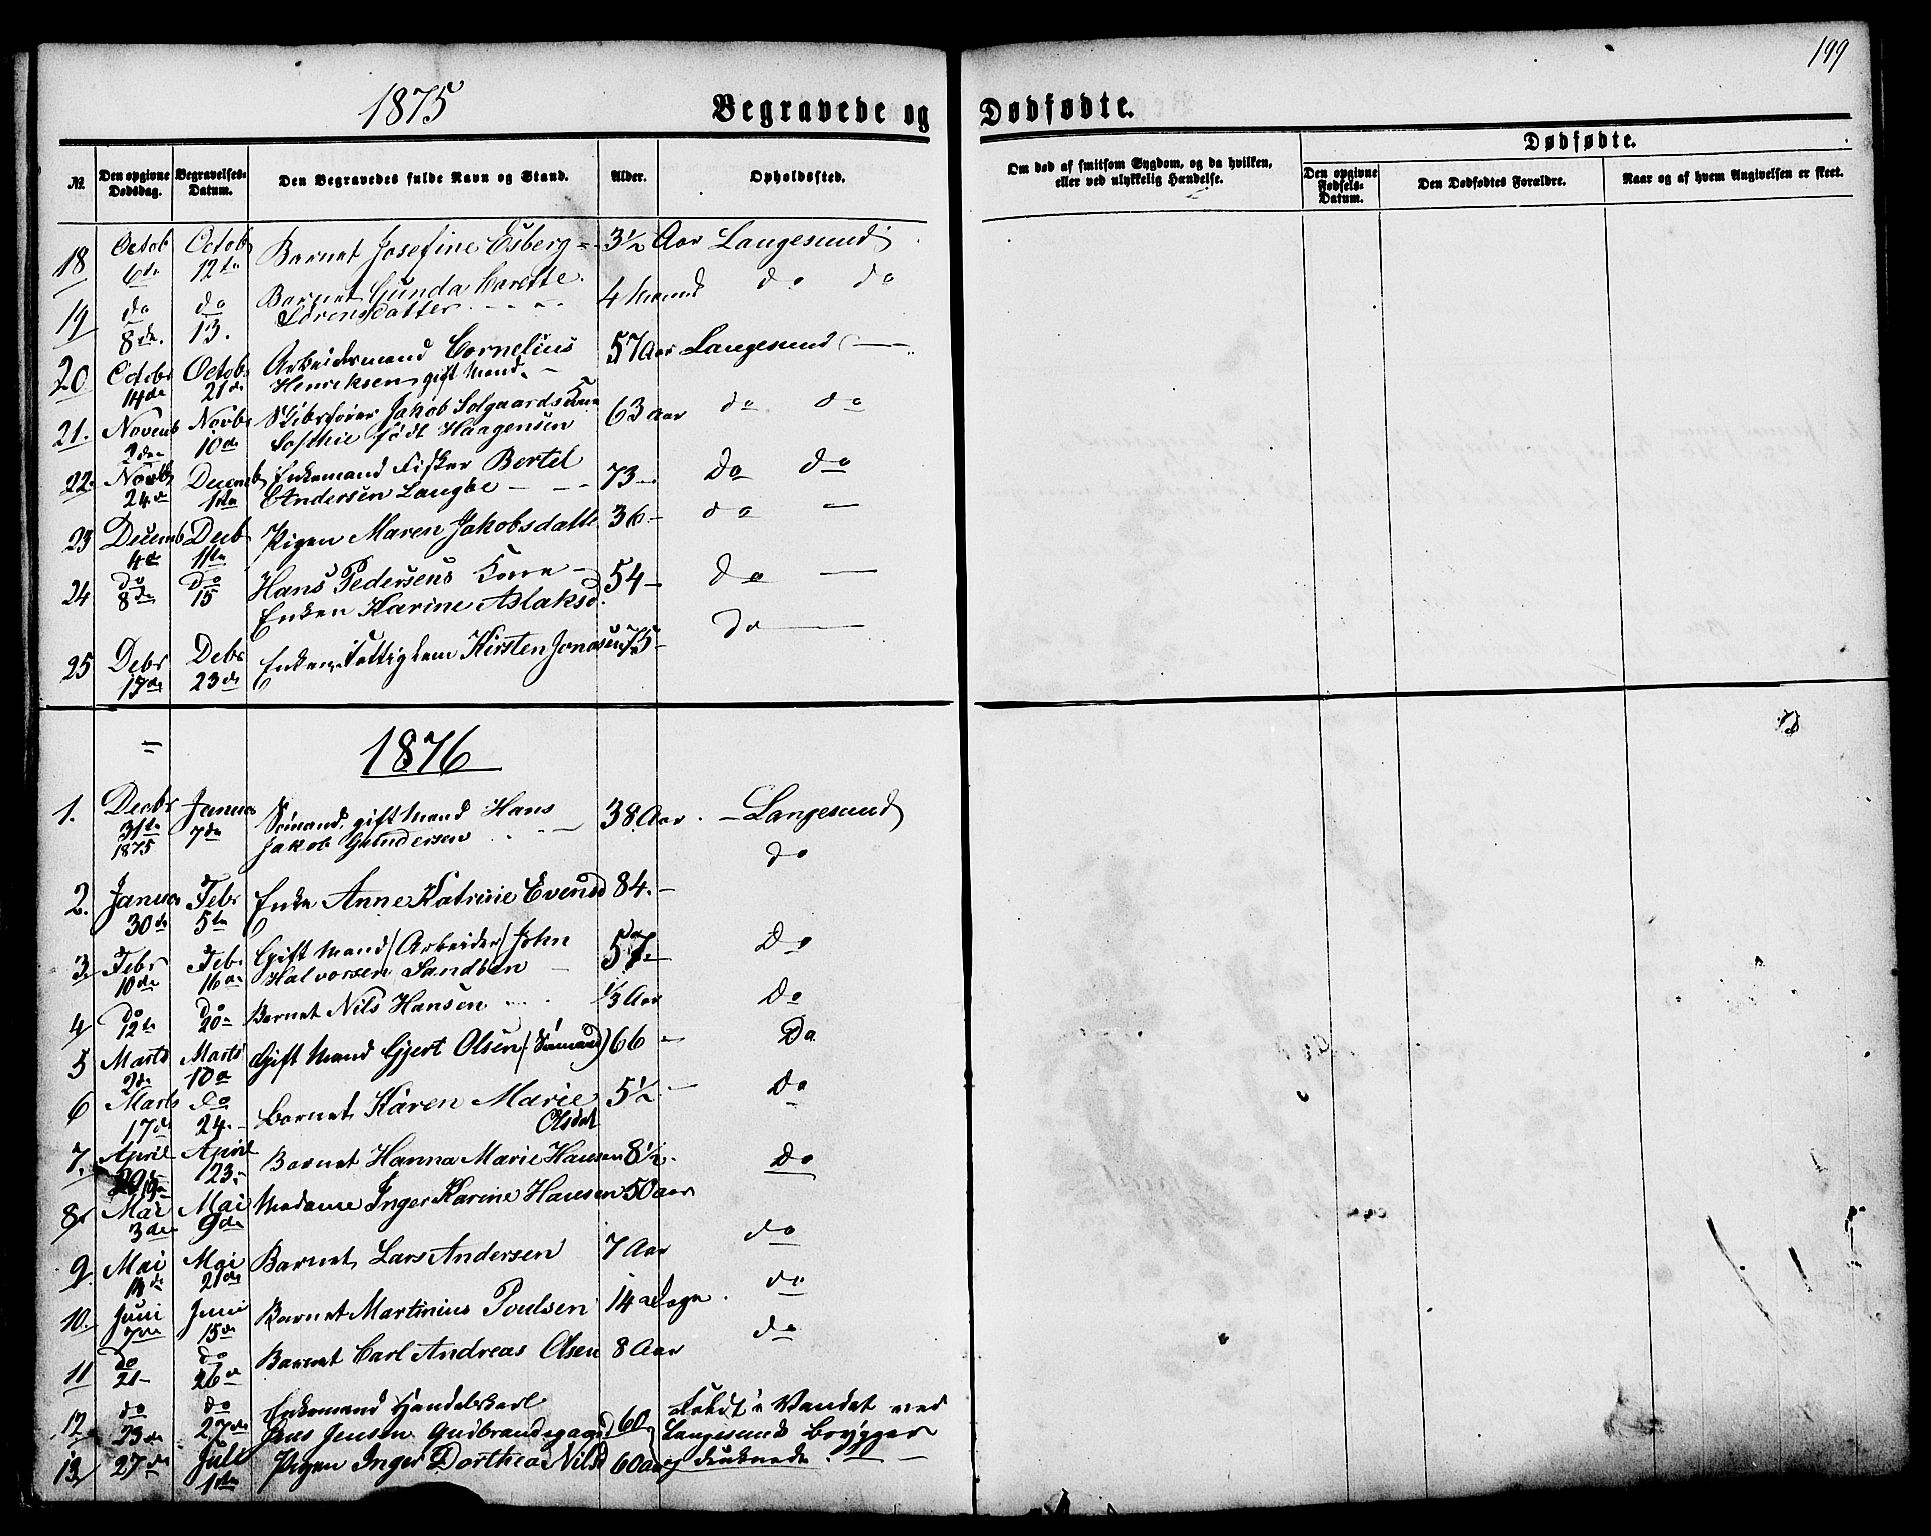 199
1875 Begravede og Dødfødte.
Dødfødte.
No. Den opgivne Dødsdag. Begravelses-Datum. Den Begravedes fulde Navn og Stand. Alder. Opholdssted. Om død af smitsom Sygdom, og da hvilken, eller ved ulykkelig Hændelse. Den opgivne Fødsels-Datum. Den Dødfødtes Forældre. Naar og af hvem Angivelsen er skeet.
18 Octob Octob Barnet Josefine Esberg 3½ Aar Langesund
6de 12te
19 do do Barnet Gunda do do
8de 13. Sørensdatter 4
20 Octobr Octob Arbeidsmand Cornelius 57 Aar Langesund
14de 21de Henriksen gift Mand
21. Novemb Novbr Skibsfører Jakob Solgaards Kone 63 Aar do do
2den 10de Sofhie født Haagensen
22. Novb Decemb Enkemand Fisker Bertel 73 do do
24de 1ste Andersen Langøe
23 Decemb Decb Pigen Maren Jakobsdatte 36 do
4de 11te
24 do do Hans Pedersens Kone 54 do
8de 15 Enken Karine Aslaksd.
25 Debr Debr Enken, Fattiglem Kirsten Jonasen 75 do
17de 23de
1876
1. Decbr Janua Sømand, gift Mand Hans 38 Aar Langesund
31te 7de Jakob Gundersen
1875
2. Janua Febr Enke Anne Katrine Evensd 84. do
30de 5te
3 Febr Febr Gift Mand (Arbeider) John 57 Do
10de 16de Halvorsen Sandøen
4 do do Barnet Nils Hansen 1/3 Aar Do
12te 20de
5 Marts Marts Gift Mand Gjert Olsen (Sømand) 66 Do
2de 10de
6 Marts do Barnet Karen Marie 5½ Do
17de 24. Olsdat
7. April April Barnet Hanna Marie Hansen 8½ Do
23.
8 Mai Mai Madame Inger Karine Hansen 50 Aar
3de 9de
9. Mai Mai Barnet Lars Andersen 7 Aar do
21de
10. Juni Juni Barnet Martinius Poulsen 14 Dage do
7de 15de
11 do do Barnet Carl Andreas Olsen 8 Aar do
21 26de
12. do do Enkemand Handelskarl 60 Faldt i Vandet ved
23de 27de Jens Jensen Langesund Brygger
13. 27de Juli Pigen Inger Dorthea Nilsd 60 Aar og druknede.
1ste